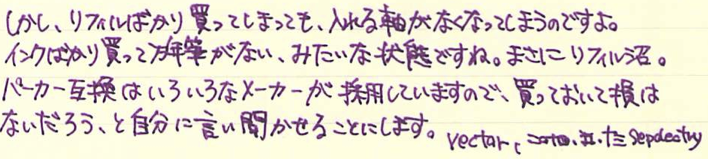 しかし、リフィルばかり買ってしまっても、入れる軸がなくなってしまうのですよ。
インクばかり買って万年筆がない、みたいな状態ですね。まさにリフィル沼。
パーカー互換はいろいろなメーカーが採用していますので、買っておいて損は
ないだろう、と自分に言い聞かせることにします。 vector